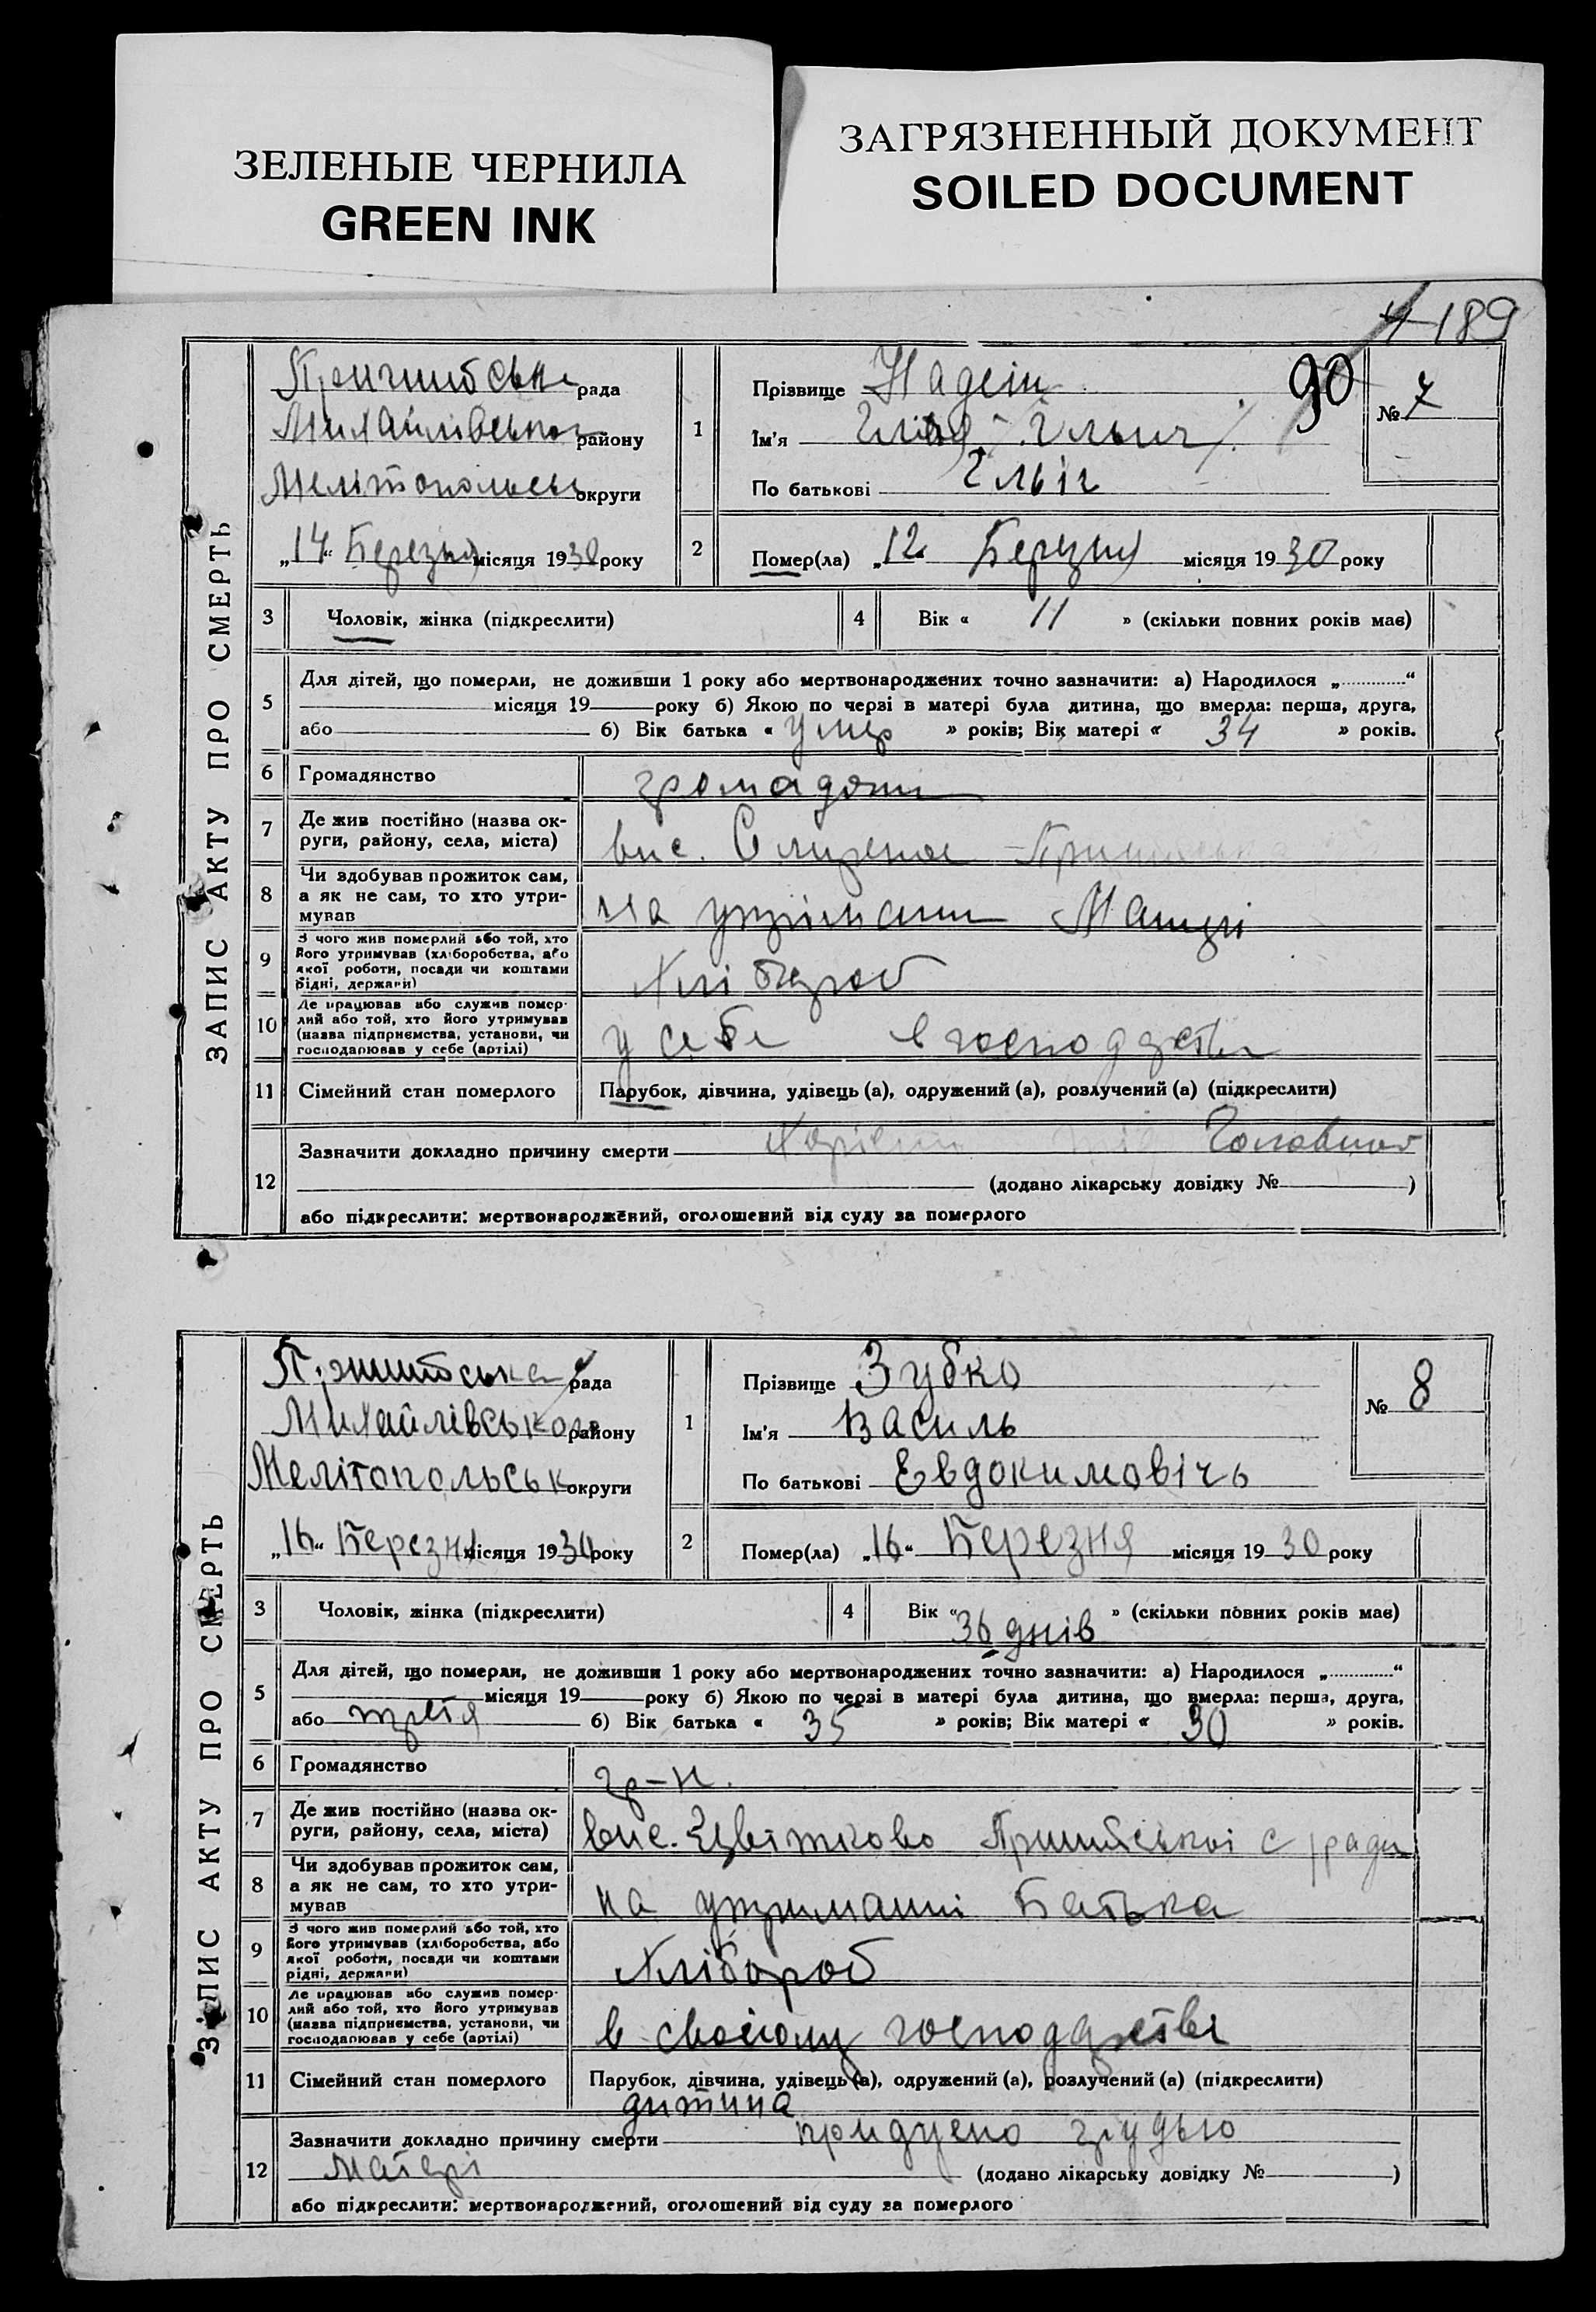 ЗЕЛЕНЫЕ ЧЕРНИЛА
GREEN INK
ЗАГРЯЗНЕННЫЙ ДОКУМЕНТ
SOILED DOCUMENT
189
90
ЗАПИС АКТУ ПРО СМЕРТЬ
рада
Михайлівського району
Мелітопольськ округи
„14“ Березня місяця 1930 року
1
Прізвище Надеін
Ім'я Ільич
По батькові Ільіч
№ 7
2
Помер(ла) „12“ Березня місяця 1930 року
3 Чоловік, жінка (підкреслити)
4 Вік « 11 » (скільки повних років має)
5 Для дітей, що померли, не доживши 1 року або мертвонароджених точно зазначити: а) Народилося „ “
місяця 19 року б) Якою по черзі в матері була дитина, що вмерла: перша, друга,
або б) Вік батька « умер » років; Вік матері « 34 » років.
6 Громадянство громадян
7 Де жив постійно (назва ок-
руги, району, села, міста) вис.
8 Чи здобував прожиток сам,
а як не сам, то хто утри-
мував на утриманні Матері
9 З чого жив померлий або той, хто
його утримував (хліборобства, або
якої роботи, посади чи коштами
рідні, держави) Хлібороб
10 Де працював або служив помер-
лий або той, хто його утримував
(назва підприємства, установи, чи
господарював у себе (артілі) у себе в господарстві
11 Сімейний стан померлого Парубок, дівчина, удівець (а), одружений (а), розлучений (а) (підкреслити)
12 Зазначити докладно причину смерти
(додано лікарську довідку № )
або підкреслити: мертвонароджений, оголошений від суду за померлого
ЗАПИС АКТУ ПРО СМЕРТЬ
рада
Михайлівського району
Мелітопольськ округи
„16“ Березня місяця 1930 року
1
Прізвище Зубко
Ім'я Василь
По батькові Евдокимовічь
№ 8
2
Помер(ла) „16“ Березня місяця 1930 року
3 Чоловік, жінка (підкреслити)
4 Вік « 36 днів » (скільки повних років має)
5 Для дітей, що померли, не доживши 1 року або мертвонароджених точно зазначити: а) Народилося „ “
місяця 19 року б) Якою по черзі в матері була дитина, що вмерла: перша, друга,
або третя б) Вік батька « 35 » років; Вік матері « 30 » років.
6 Громадянство гр-н.
7 Де жив постійно (назва ок-
руги, району, села, міста) вис. Цвітково с/ради
8 Чи здобував прожиток сам,
а як не сам, то хто утри-
мував на утриманні Батька
9 З чого жив померлий або той, хто
його утримував (хліборобства, або
якої роботи, посади чи коштами
рідні, держави) Хлібороб
10 Де працював або служив помер-
лий або той, хто його утримував
(назва підприємства, установи, чи
господарював у себе (артілі) в своїому господарстві
11 Сімейний стан померлого Парубок, дівчина, удівець (а), одружений (а), розлучений (а) (підкреслити)
дитина
12 Зазначити докладно причину смерти придушено грудью
Матері (додано лікарську довідку № )
або підкреслити: мертвонароджений, оголошений від суду за померлого